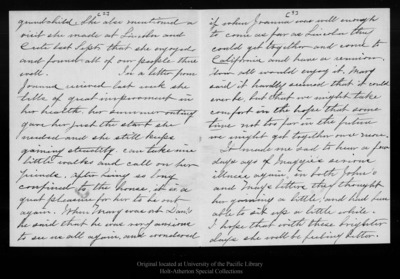 [2]
grandchild. She also mentioned a
visit she made at Lincoln and
Crete last Sept. that she enjoyed
and found all of our people there
well. In a letter from
Joanna received last week she
tells of great improvement in
her health. her summer outing
gave her just the start she
needed and she still keeps
gaining steadily. can take nice
little walks and call on her
friends. after being so long
confined to the house, it is a
great pleasure for her to be out
again. When Mary was at Dan's
he said that he was very anxious
to see us all again, and wondered
[3]
if when Joanna was well enough
to come as far as Lincoln they
could get together and come to
California and have a reunion.
How all would enjoy it. Mary
said it hardly seemed that it could
ever be, but that we might take
comfort in the hope that some
time not too far in the future
we might get together once more.
It made me sad to hear a few
days ago of Maggie's serious
illness again, in both John's
and May's letters they thought
her gaining a little, and had been
able to sit up a little while.
I hope that with these brighter
days she will be feeling better.
Original located at University of the Pacific Library
Holt-Atherton Special Collections